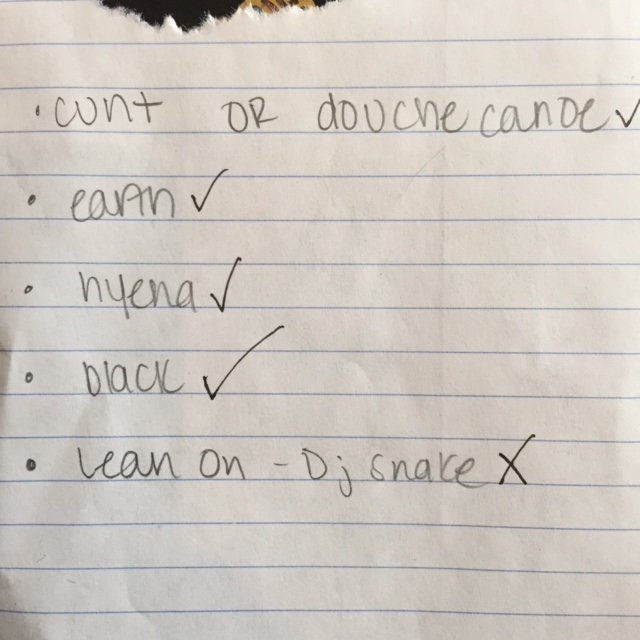 • cunt OR douche canoe ✓
• earth ✓
• hyena ✓
• black ✓
• Lean On - Dj snake X